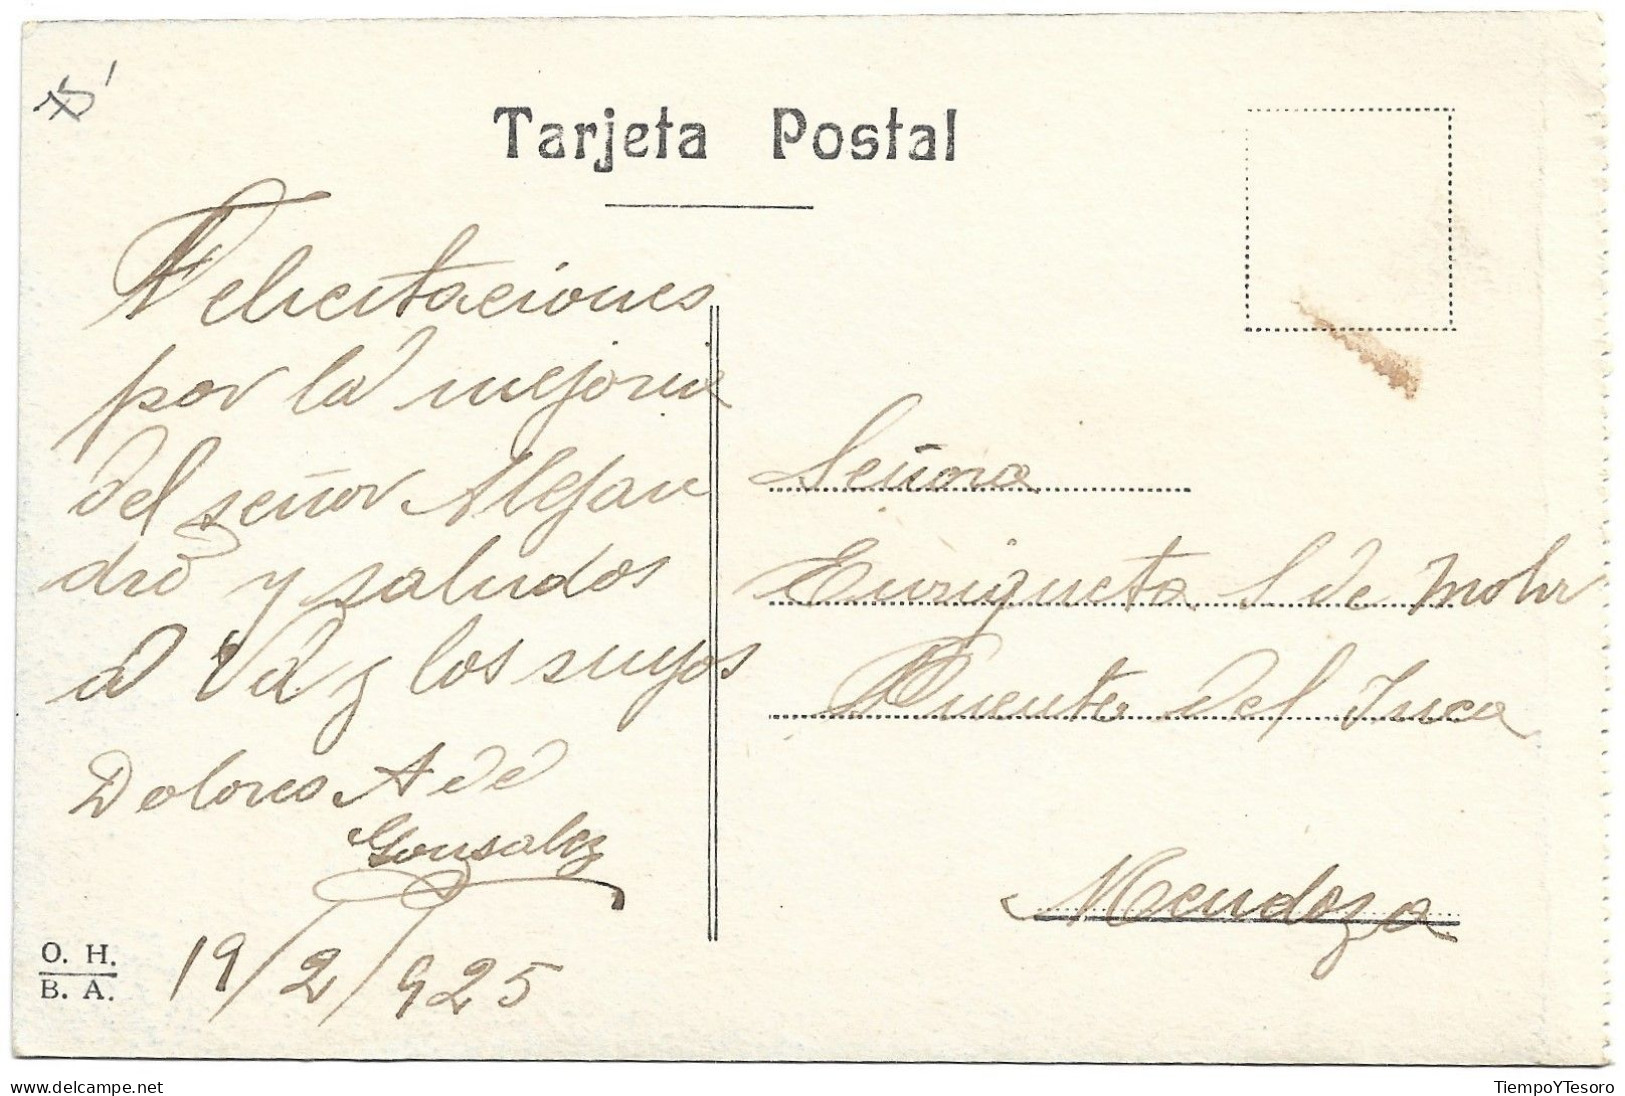 75
Tarjeta Postal
Felicitaciones
por la mejoria
del señor Alejan
dro y saludos
a Vd y los suyos
Dolores A de
Gonsalez
19/2/925
O. H.
B. A.
Señora
Enriqueta S de Mohr
Puente del Inca
Mendoza
delcampe.net
TiempoYTesoro